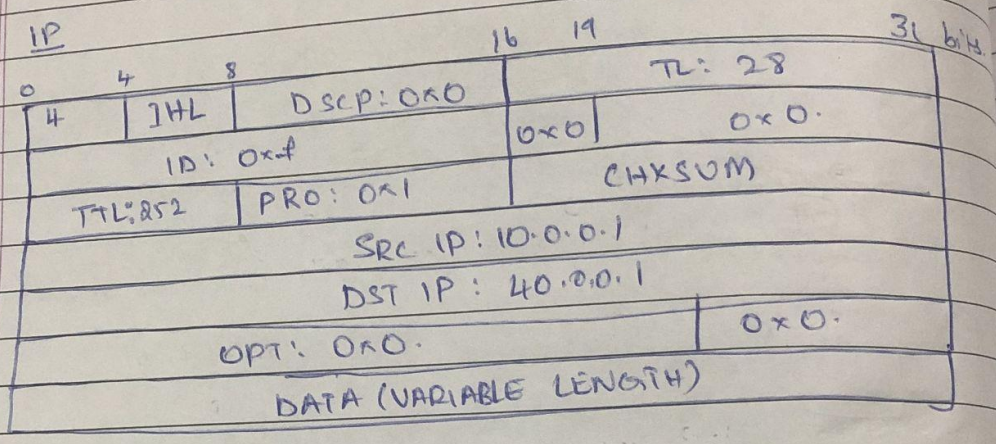 IP
0 4 8 16 19 31 bits.
4 IHL DSCP: 0x0 TL: 28
ID: 0xf 0x0 0x0.
TTL: 252 PRO: 0x1 CHKSUM
SRC IP: 10.0.0.1
DST IP: 40.0.0.1
OPT: 0x0. 0x0.
DATA (VARIABLE LENGTH)